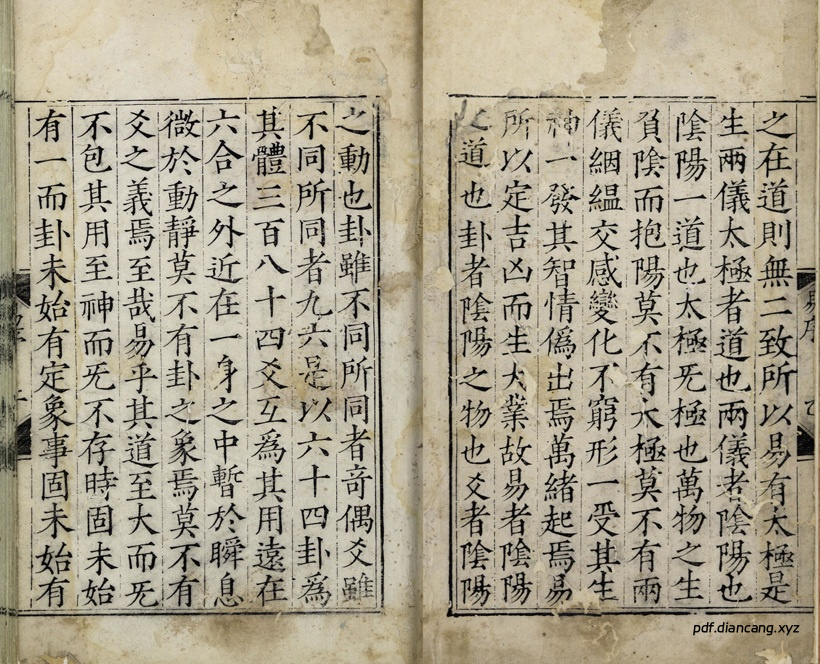 之在道則無二致所以易有太極是
生兩儀太極者道也兩儀者陰陽也
陰陽一道也太極旡極也萬物之生
負陰而抱陽莫不有太極莫不有兩
儀絪縕交感變化不窮形一受其生
神一發其智情僞出焉萬緒起焉易
所以定吉凶而生大業故易者陰陽
之道也卦者陰陽之物也爻者陰陽
之動也卦雖不同所同者竒偶爻雖
不同所同者九六是以六十四卦爲
其體三百八十四爻互爲其用遠在
六合之外近在一身之中暫於瞬息
微於動靜莫不有卦之象焉莫不有
爻之義焉至哉易乎其道至大而旡
不包其用至神而旡不存時固未始
有一而卦未始有定象事固未始有
易序
pdf.diancang.xyz